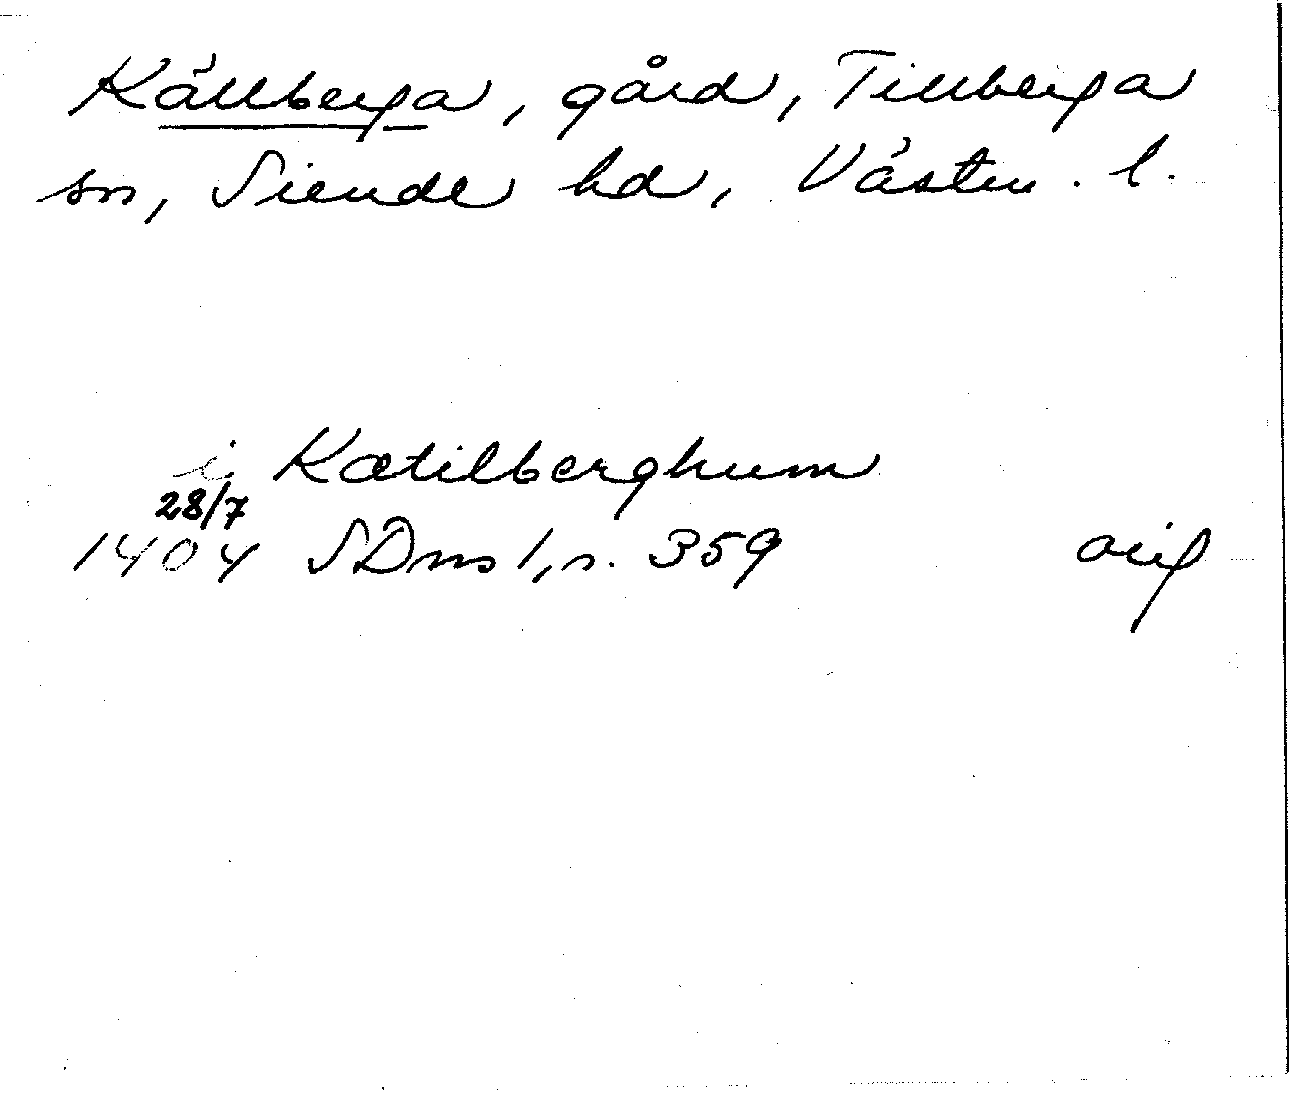 Källberga, gård, Tillberga
sn, Siende hd, Västm. l.
i Katilberghum
28/7
1404 SDns 1, n. 359 orig